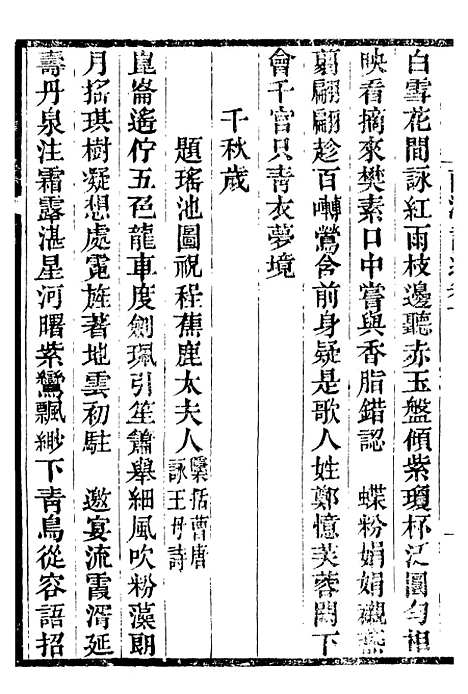 白雪花間詠紅雨枝邊聽赤玉盤傾紫瓊杯泛圓勻相
映看摘來樊素口中嘗與香脂錯認　蝶粉娟娟襯燕
翦翩翩趁百囀鶯含前身疑是歌人姓鄭憶芙蓉闕下
會千官只青衣夢境
千秋歲
題瑤池圖祝程蕉鹿太夫人檃括曹唐詠王丹詩
崑崙遙佇五色龍車度劍珮引笙簫舉細風吹粉藻朗
月搖琪樹凝想處霓旌著地雲初駐　邀宴流霞湑延
壽丹泉注霜露湛星河曙紫鸞飄緲下青鳥從容語招